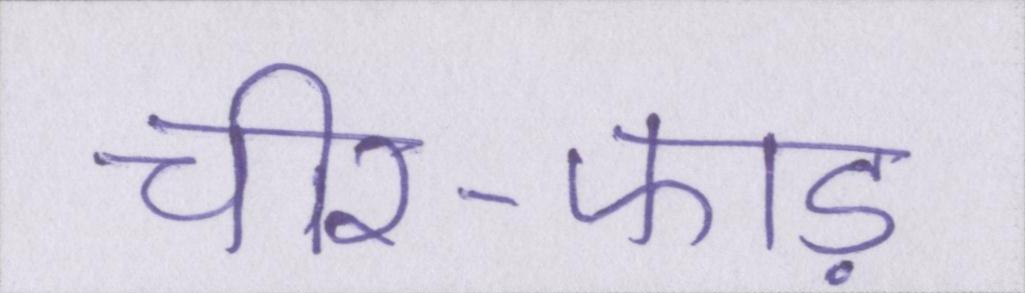 चीर-फाड़